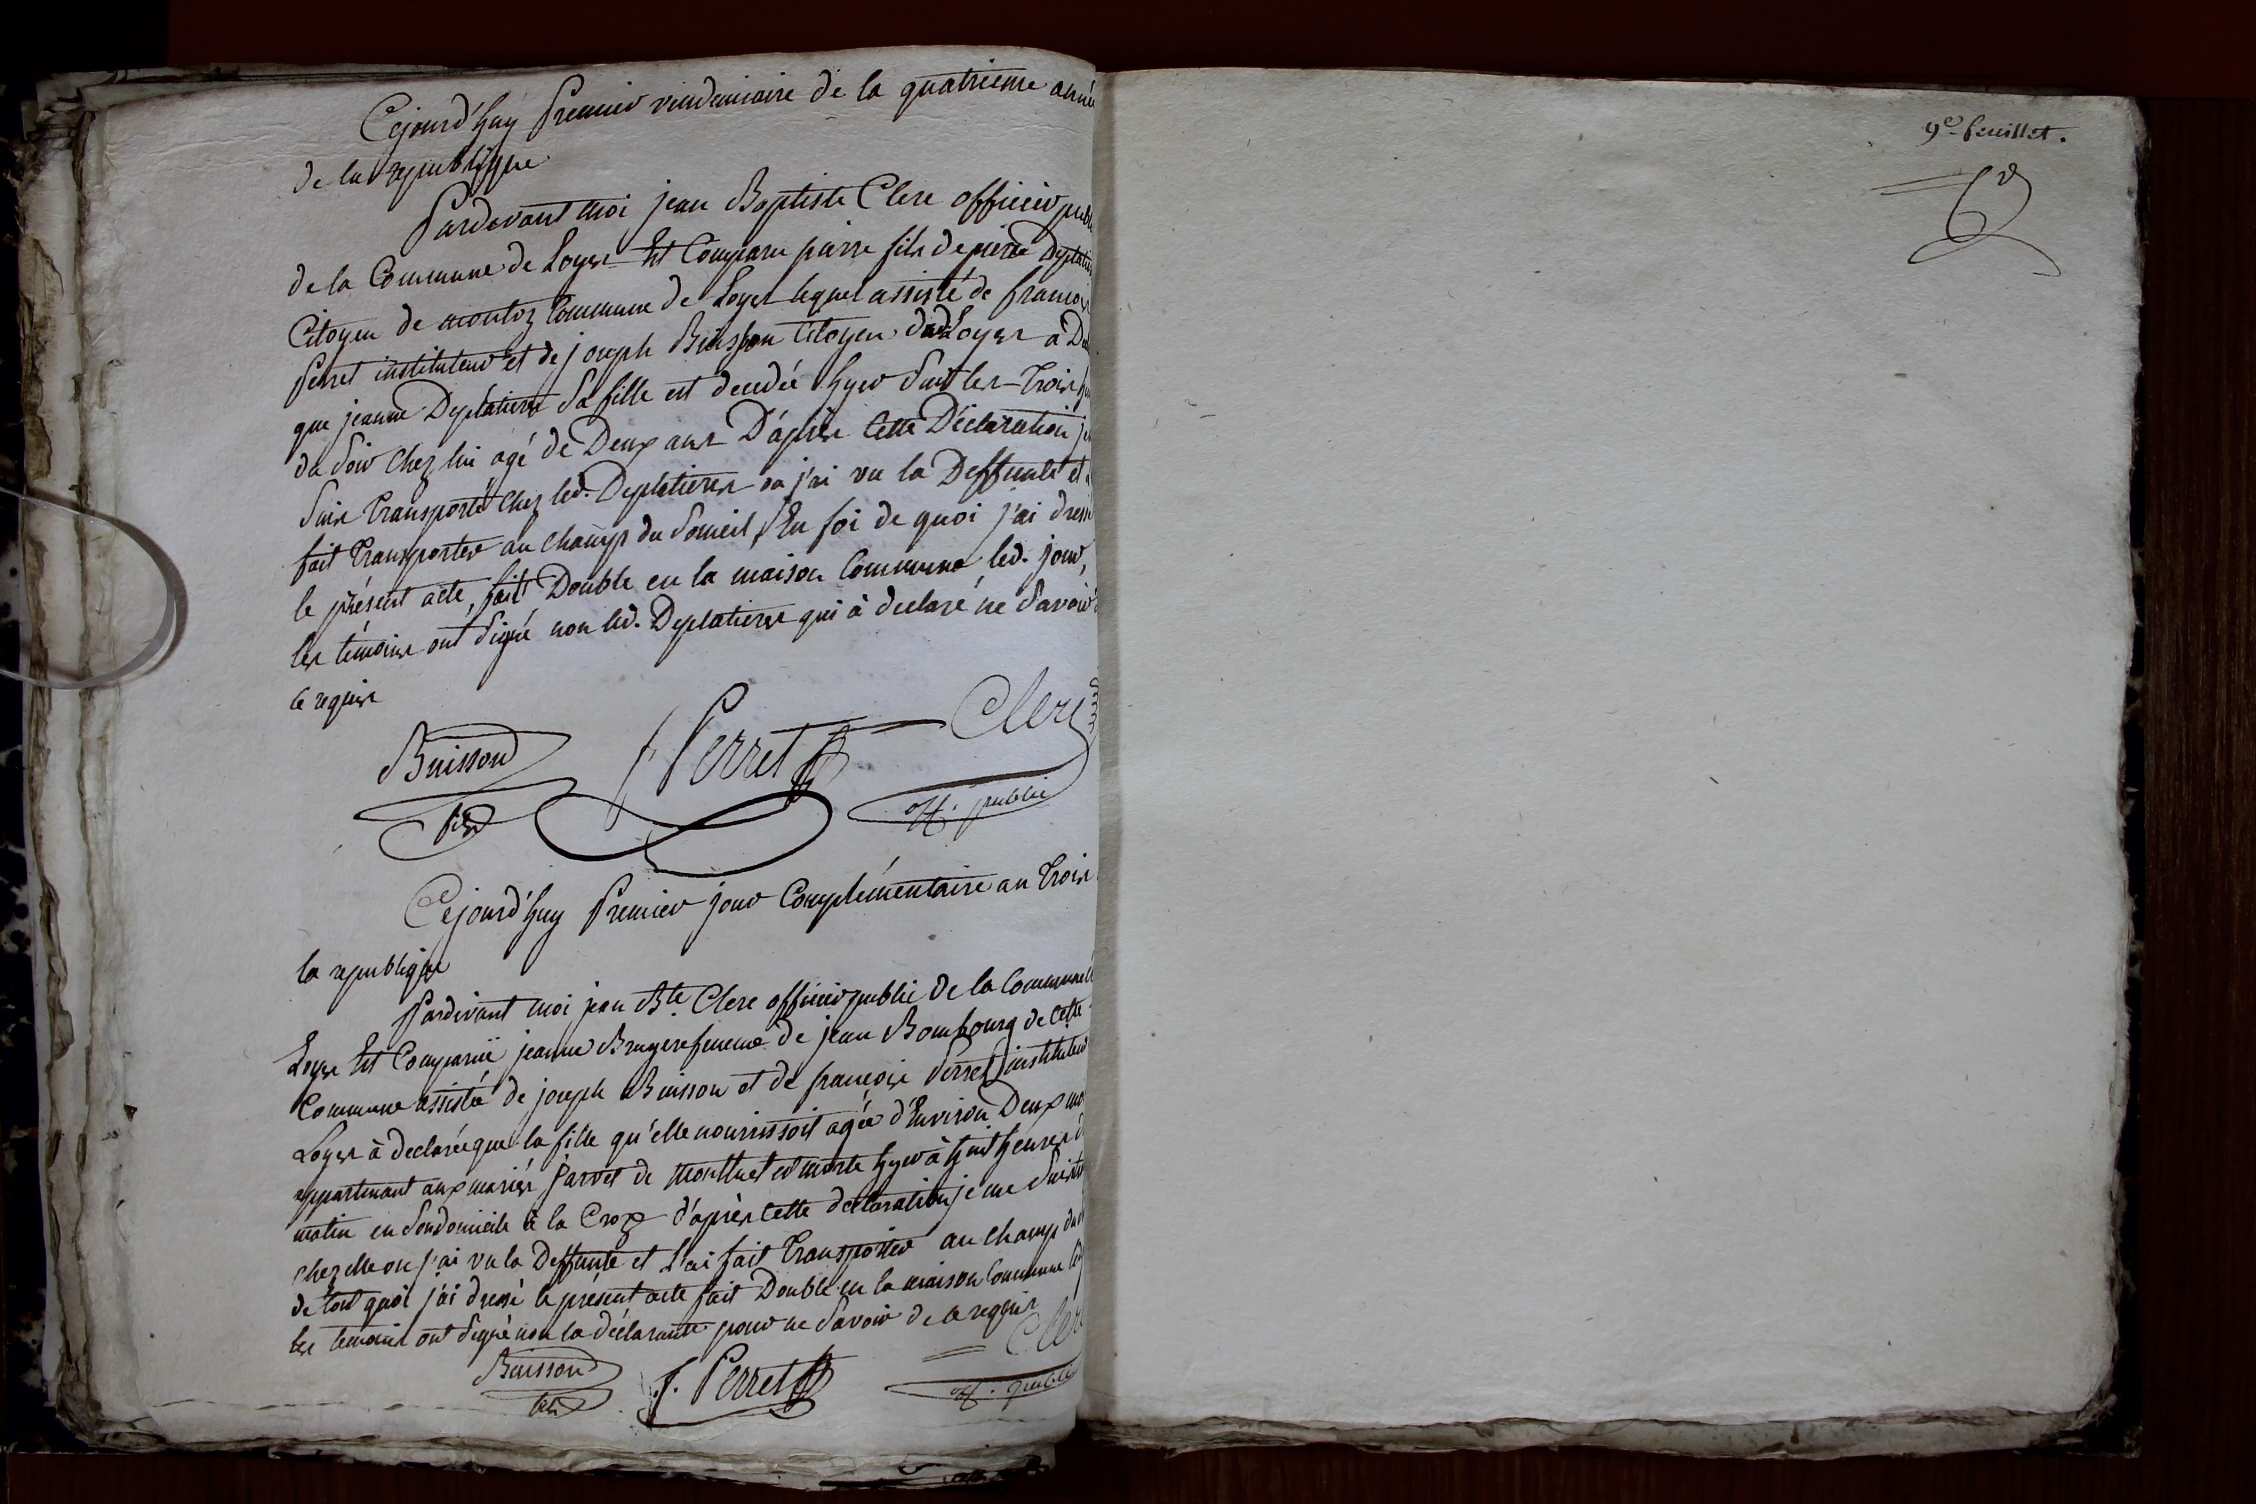 Cejourd'huy Premier vendemiaire de la quatrieme année
de la republique
Pardevant moi jean Baptiste Clerc officier publ
de la Commune de Loyes Est Comparu pierre fils de pierre Deplatier
Citoyen de montoz Commune de Loyes lequel assisté de francois
Perret instituteur et de joseph Buisson Citoyen dud Loyes a D
que jeanne Deplatieres sa fille est decedée hyer Sur les Trois
du Soir chez lui agé de Deux ans D'après Cette Déclaration je
Suis Transporté chez led. Deplatieres ou j'ai vu la Deffunte et
fait Transporter au champ du Someil, En foi de quoi j'ai dressé
le présent acte, fait Double en la maison Commune led. jour,
les témoins ont Signé non led. Deplatieres qui à declaré ne Savoir
ce requis
Buisson F. Perret Clerc
fils off. public
Cejourd'huy Premier jour Complémentaire an Trois
la republique
Pardevant moi jean Bte. Clerc officier public de la Commune
Loyes Est Comparüe jeanne Brugere femme de jean Bombourg de cette
Commune assistée de joseph Buisson et de françois Perret instituteur
Loyes à declaré que la fille qu'elle nourrissoit agée d'Environ Deux mo
appartenant aux mariés Jarvet de Montluel est morte hyer à huit heures d
matin en Son domicile à la Croze d'après cette declaration je me Suis tr
chez elle ou j'ai vu la Deffunte et L'ai fait Transporter au champ du
de tout quoi j'ai dressé le présent acte fait Double en la maison Commune led
les temoins ont Signé non la déclarante pour ne Savoir de ce requis
Buisson F. Perret Clerc
fils off. public
9e feuillet.